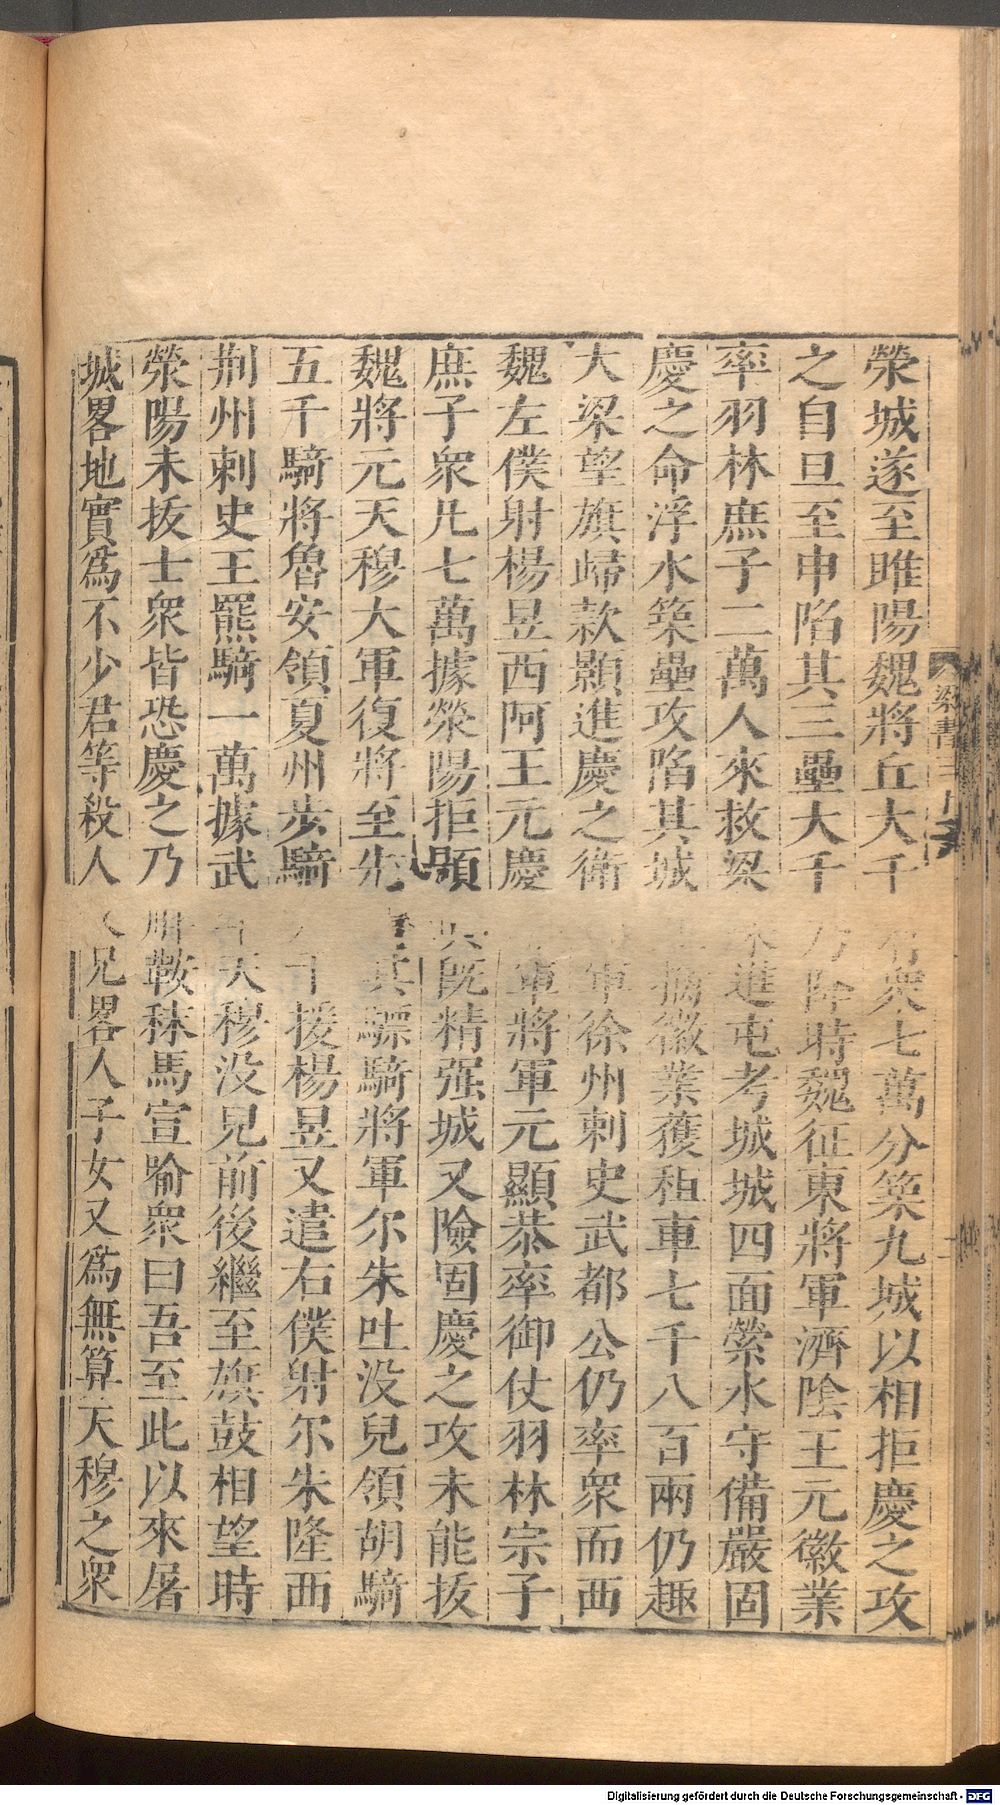 滎城遂至睢陽魏將丘大千有衆七萬分築九城以相拒慶之攻
之自旦至申陷其三壘大千乃降時魏征東將軍濟陰王元徽業
率羽林庶子二萬人來救梁宋進屯考城城四面縈水守備嚴固
慶之命浮水築壘攻陷其城擒徽業獲租車七千八百兩仍趣
大梁望旗歸款顯進慶之衛軍徐州刺史武都公仍率衆而西
魏左僕射楊昱西阿王元慶軍將軍元顯恭率御仗羽林宗子
庶子衆凡七萬據滎陽拒顯兵既精强城又險固慶之攻未能拔
魏將元天穆大軍復將至先其驃騎將軍尔朱吐没兒領胡騎
五千騎將魯安領夏州步騎千援楊昱又遣右僕射尔朱隆西
荆州刺史王羆騎一萬據武牢天穆没兒前後繼至旗鼓相望時
滎陽未拔士衆皆恐慶之乃解鞍秣馬宣喻衆曰吾至此以來屠
城畧地實爲不少君等殺人父兄畧人子女又爲無算天穆之衆
梁書三十
Digitalisierung gefördert durch die Deutsche Forschungsgemeinschaft - DFG